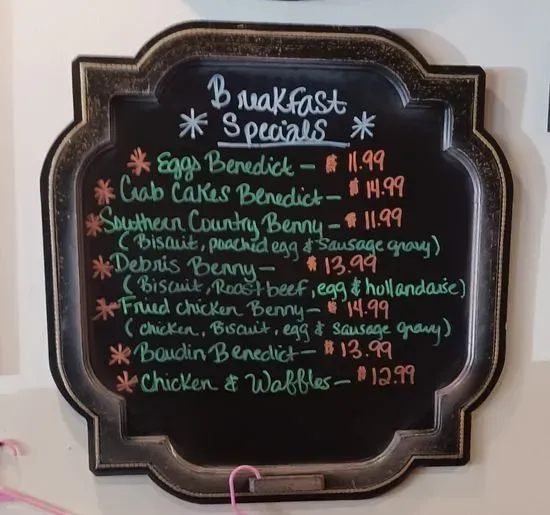 Breakfast
* Specials *
* Eggs Benedict - $ 11.99
* Crab Cakes Benedict - $ 14.99
* Southern Country Benny - $ 11.99
(Biscuit, poached egg & sausage gravy)
* Debris Benny - $ 13.99
(Biscuit, Roast beef, egg & hollandaise)
* Fried chicken Benny - $ 14.99
(chicken, Biscuit, egg & sausage gravy)
* Boudin Benedict - $ 13.99
* Chicken & Waffles - $ 12.99